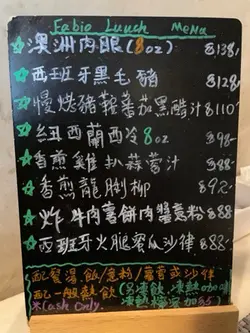 Fabio Lunch Menu
☆澳洲肉眼(8oz) $138.-
☆西班牙黑毛豬 $128
☆慢烤豬鞍蕃茄黑酷汁 $110
☆紐西蘭西冷8oz $98.-
☆香煎雞扒蒜蓉汁 $88-
☆香煎龍脷柳 $92-
☆炸牛肉薯餅肉醬意粉 $88
☆西班牙火腿蜜瓜沙律 $88-
配餐湯,飯/意粉/薯蓉或沙律
配一般熱飲
*Cash Only.